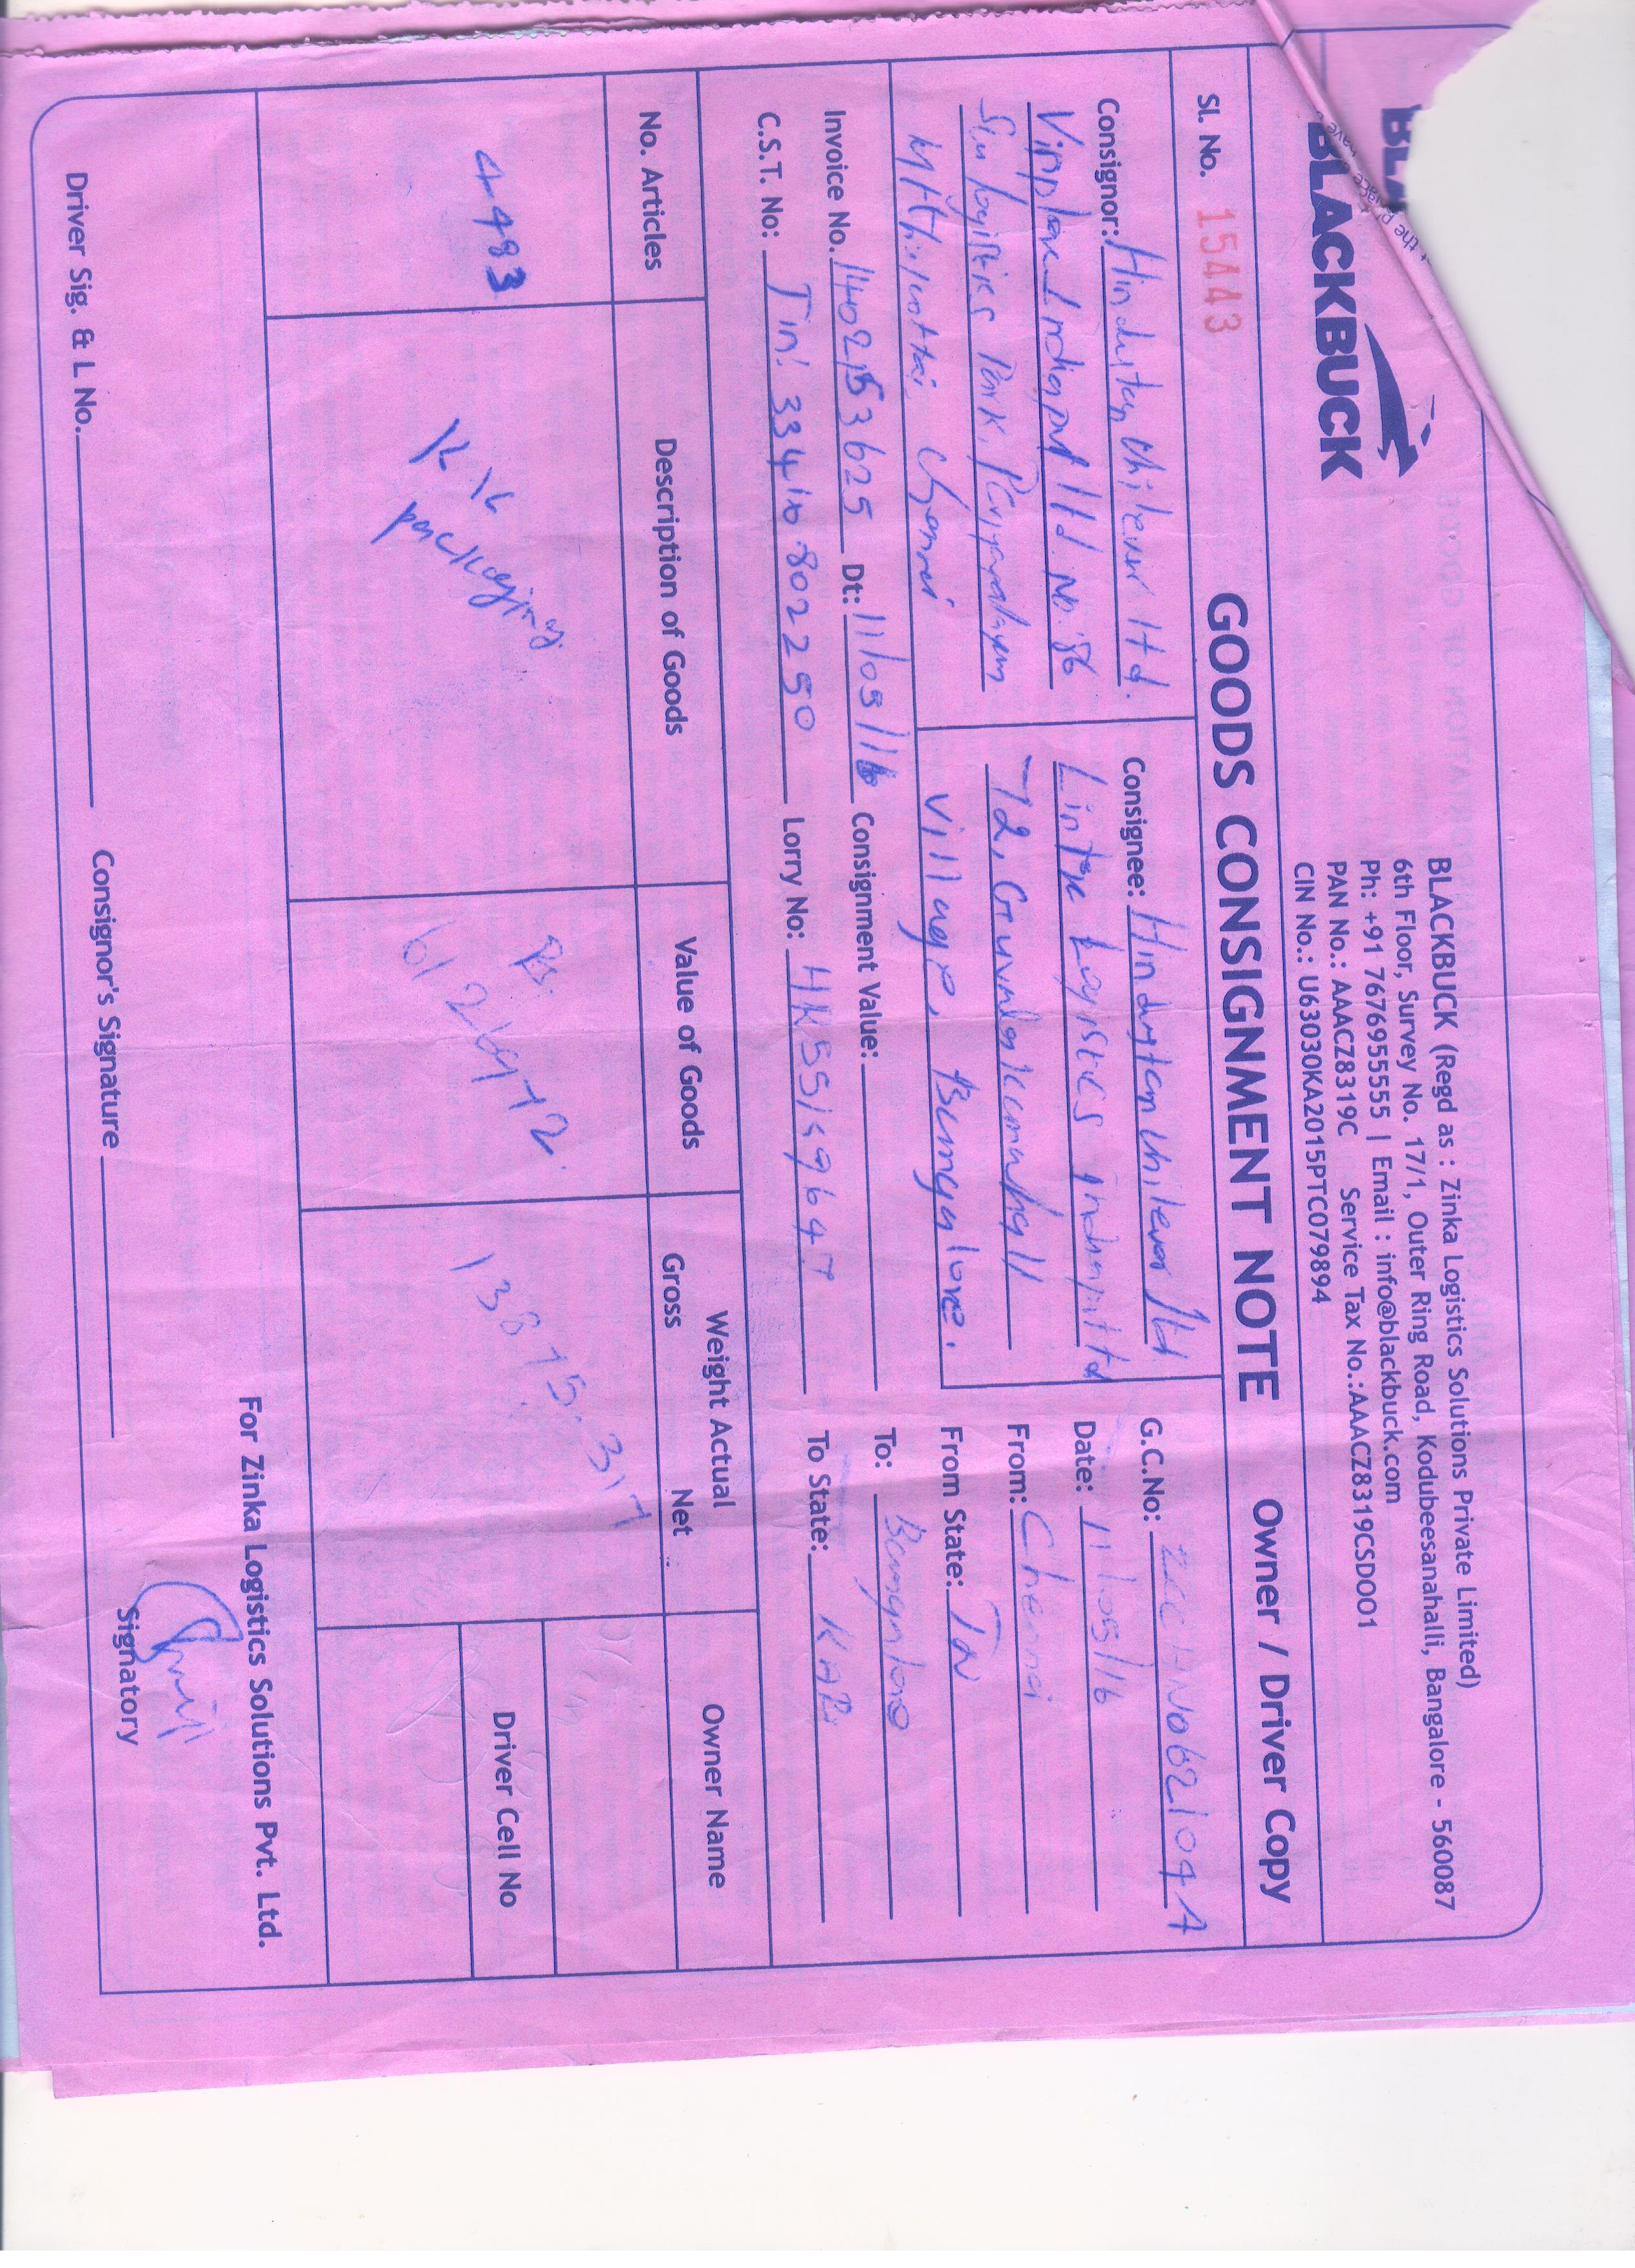 BLACKBUCK
BLACKBUCK (Regd as : Zinka Logistics Solutions Private Limited)
6th Floor, Survey No. 17/1, Outer Ring Road, Kodubeesanahalli, Bangalore - 560087
Ph: +91 7676955555 | Email : info@blackbuck.com
PAN No.: AAACZ8319C Service Tax No.:AAACZ8319CSDOO1
CIN No.: U63030KA2015PTC079894
Sl. No. 15443 GOODS CONSIGNMENT NOTE Owner / Driver Copy
Consignor: Hindustan Unilever ltd.
No. 86
logistics Park,
Chennai
Consignee: Hindustan Unilever ltd
Logistics India pvt ltd
72,
Village, Bangalore.
G.C.No: ZCCHN062104A
Date: 11/05/16
From: Chennai
From State: TN
To: Bangalore
To State: KAR
Invoice No. 1402153625 Dt: 11/05/16 Consignment Value:
C.S.T. No: Tin: 33410802250 Lorry No: HR55K9647
No. Articles Description of Goods Value of Goods Weight Actual Gross Net Owner Name
4483 KK packaging Rs. 612 13875.317
Driver Cell No
For Zinka Logistics Solutions Pvt. Ltd.
Signatory
Driver Sig. & L No. Consignor's Signature